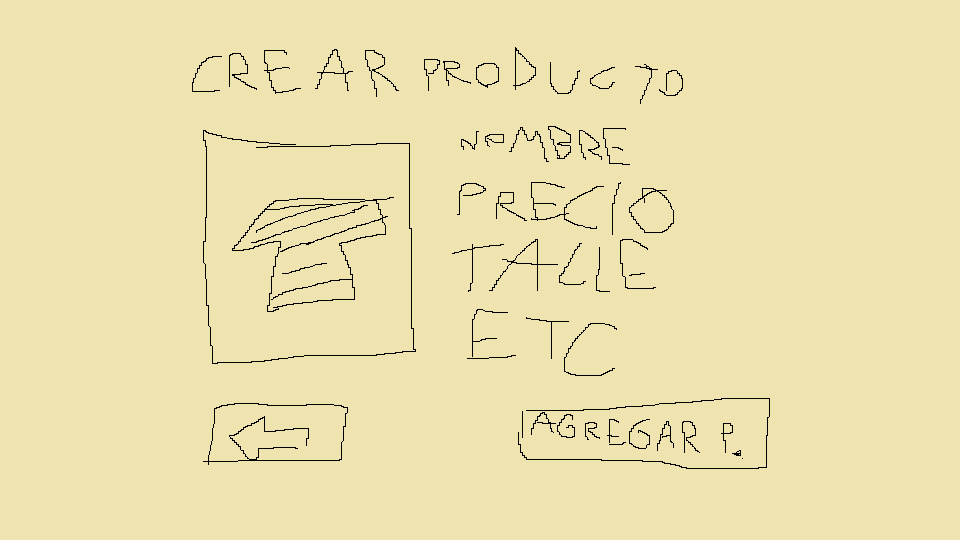 CREAR PRODUCTO
NOMBRE
PRECIO
TALLE
ETC
AGREGAR P.